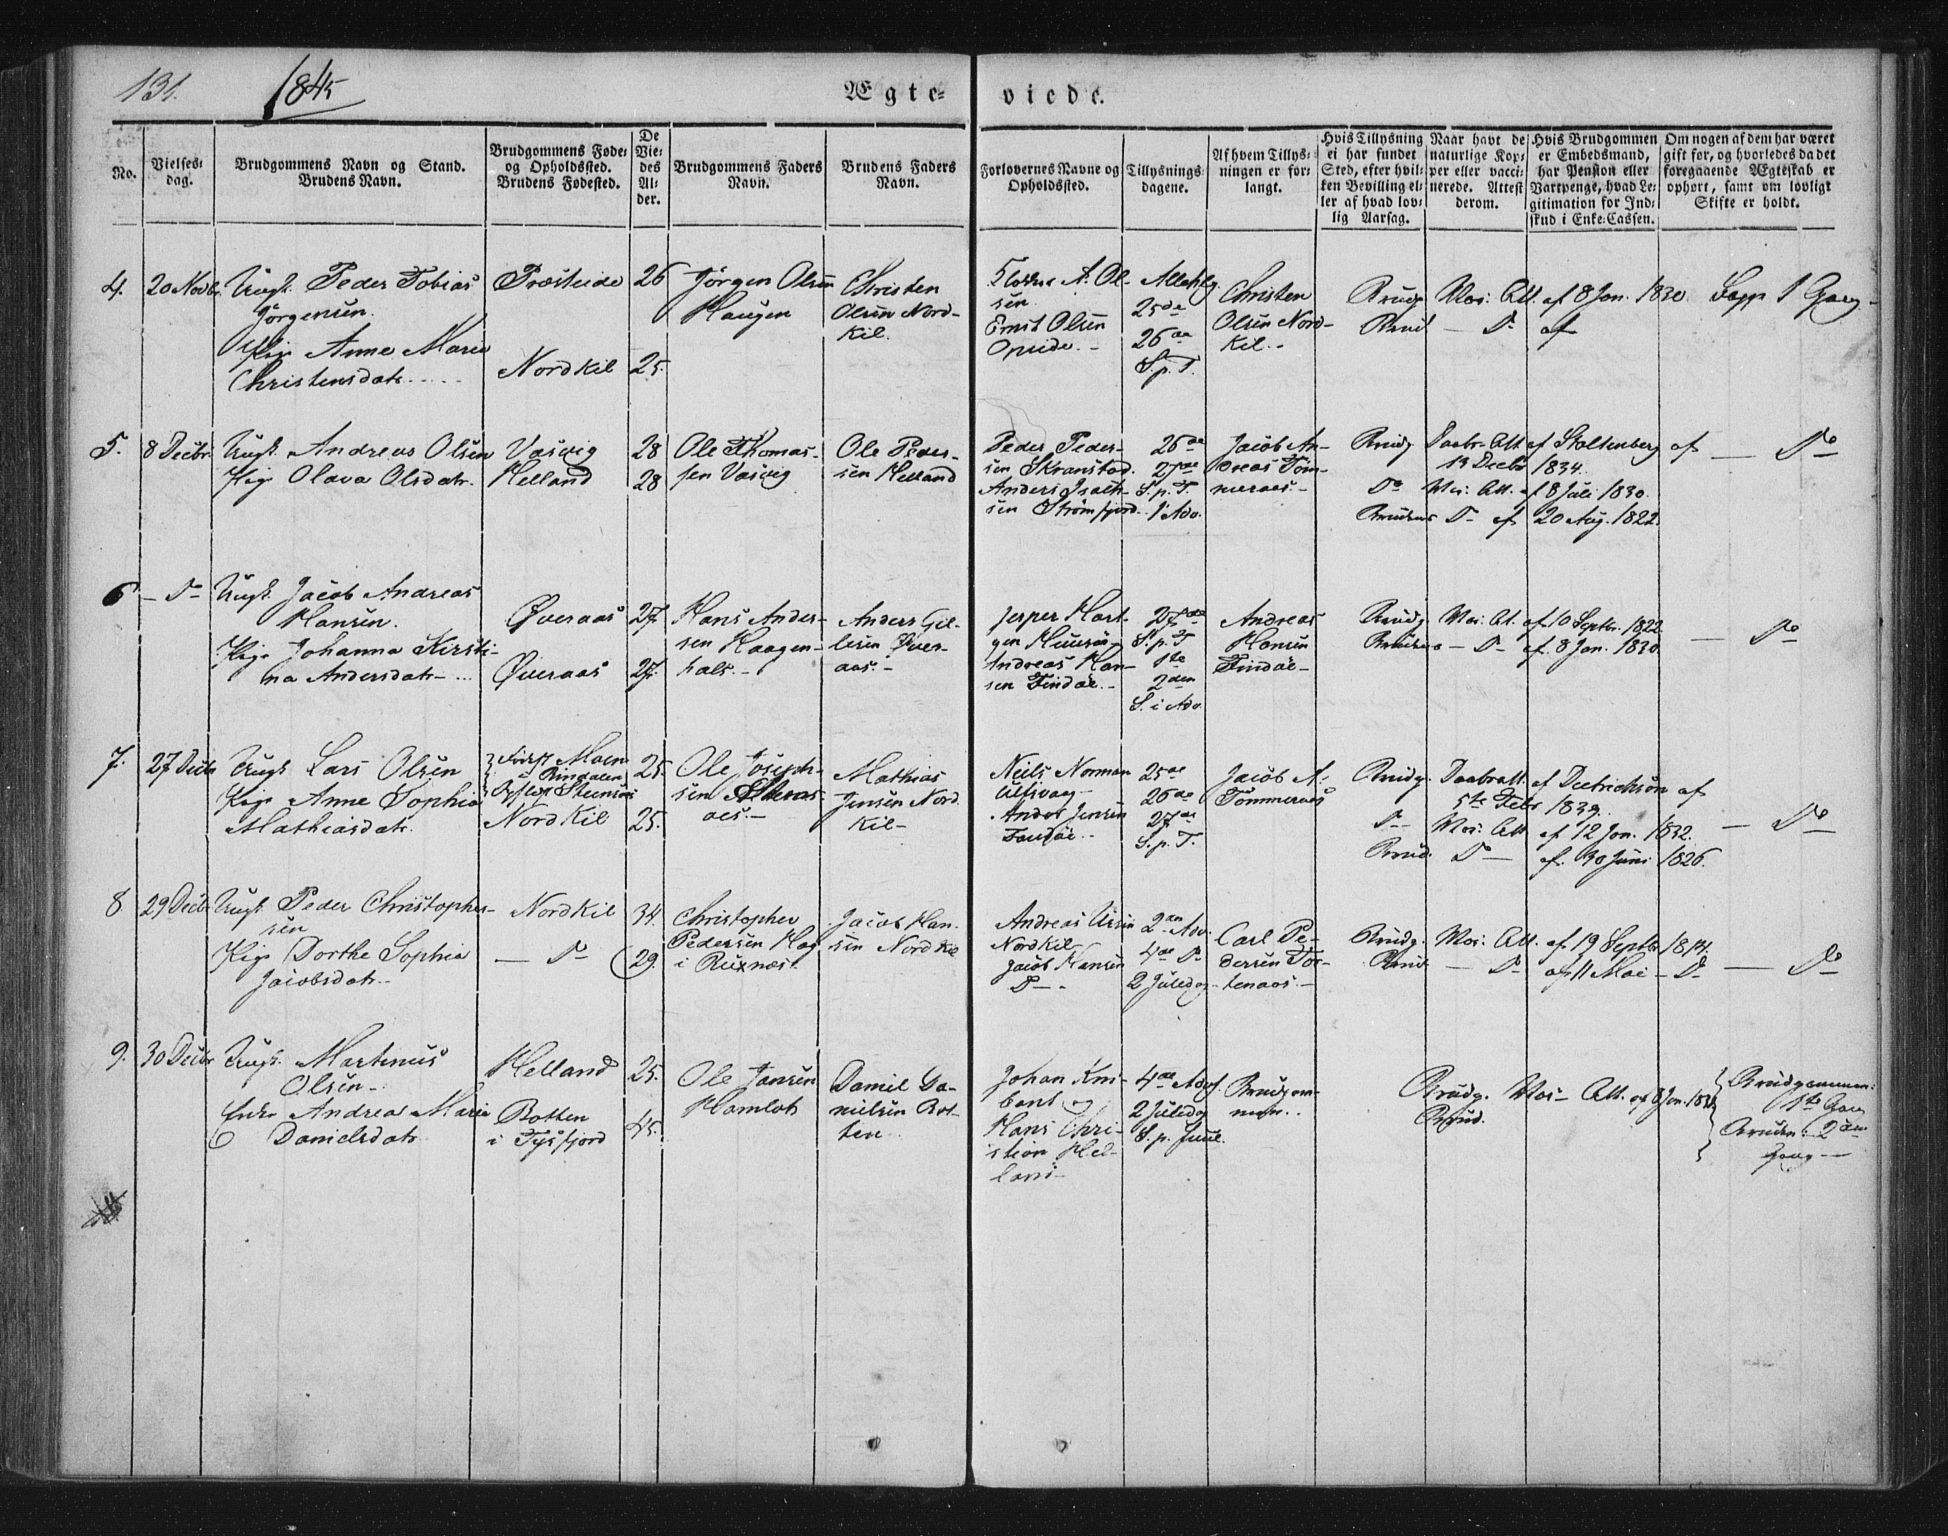 131.
1845
Ægte=
viede.
No.
Vielses=
dag.
Brudgommens Navn og Stand.
Brudens Navn.
Brudgommens Føde=
og Opholdssted.
Brudens Fødested.
De
Vie=
des
Al=
der.
Brudgommens Faders
Navn.
Brudens Faders
Navn.
Forlovernes Navne og
Opholdssted.
Tillysnings=
dagene.
Af hvem Tillys=
ningen er for=
langt.
Hvis Tillysning
ei har fundet
Sted, efter hvil=
ken Bevilling el=
ler af hvad lov=
lig Aarsag.
Naar havt de
naturlige Kop=
per eller vacci=
nerede. Attest
derom.
Hvis Brudgommen
er Embedsmand,
har Pension eller
Vartpenge, hvad Le=
gitimation for Ind=
skud i Enke-Cassen.
Om nogen af dem har været
gift før, og hvorledes da det
foregaaende Ægteskab er
ophørt, samt om lovligt
Skifte er holdt.
4.
20 Novbr
Ungk. Peder Tobias
Jörgensen.
Pige Anne Maria
Christensdatr.
Præsteide
Nordkil
26
25.
Jörgen Olsen
Haugen
Christen
Olsen Nord-
kil.
A. Ol-
sen
Ernst Olsen
25de
26de
S. p. T.
Christen
Olsen Nord-
kil.-
Brudg. Vac. Att. af 8 Jan. 1830
Brud — Do af
5.
8 Decbr.
Ungk. Andreas Olsen
Pige Olava Olsdatr.
Vasvig
Helland
28
28
Ole Thomas-
sen Vasvig
Ole Peder-
sen Helland
Peder Peder-
sen Skranstad
Anders Isach-
sen Strømfjord
26de
27de
S. p. T.
1 Adv.
Jacob An-
dreas Töm-
meraas.-
Brudg. Daabs Att. af Stoltenberg af
13 Decbr 1834.
Do Vac. Att. af 8 Juli 1830.
Brudens Do af 20 Aug. 1822.
— Do
6 — Do
Ungk. Jacob Andreas
Hansen.
Pige Johanna Kirsti-
na Andersdatr-
Øveraas
Øveraas
27.
27.
Hans Ander-
sen Haagen-
hals.-
Anders Gil-
lesen Över-
aas.-
Jesper Hart-
Andreas Han-
sen Findöe.-
27de
S. p. T
1ste
2den
S. i Adv.
Andreas
Hansen
Findöe-
Brudg. Vac. At. af 10 Septr. 1822
Brudens — Do af 8 Jan. 1830.
— Do
7.
27 Decbr
Ungk Lars Olsen
Pige Anne Sophia
Mathiasdatr.
Nordkil
25.
25.
Ole Joseph-
sen
aes.-
Mathias
Jensen Nord
kil-
Neils Norman
Ulfsvaag-
Jensen
25de
26de
27de
S. p. T.
Jacob A.
Tömmeraas
Brudg. Daabsatt. af Deetrichson af
5te Febr 1839.
Do Vac. Att af 12 Jan. 1832.
Brud. Do — af 30 Juni 1826.
— Do
8
29 Decbr
Ungk Peder Christopher-
sen
Pige Dorthe Sophia
Jacobsdatr-
Nordkil
— Do
34.
29.
Christopher
Pedersen Hog
i Rusnæs
Jacob Han-
sen Nordkil
Andreas Ursin
Nordkil
Jacob Hansen
Do -
2den Adv.
4de Do
2 Juledag
Carl Pe-
dersen Tor-
tenaas.-
Brudg. Vac. Att. af 19 Septbr 1814.
Brud — Do af 11 Mai — Do
— Do
9.
30 Decbr
Ungk. Martinus
Olsen-
Enke Andrea Maria
Danielsdatr.
Helland
Botten
i Tysfjord
25.
45.
Ole Jansen
Hamlot
Daniel Da-
nielsen Bot-
ten
Johan Kni-
Hans Chri-
stian Hel-
land-
4de Adv.
2 Juledag
S. p. Juul.
Brudgom-
men..
Brudg. Vac- Att. af 8 Jan. 1830
Brud.
Brudgommen:
1ste Gang
Bruden: 2den
Gang —